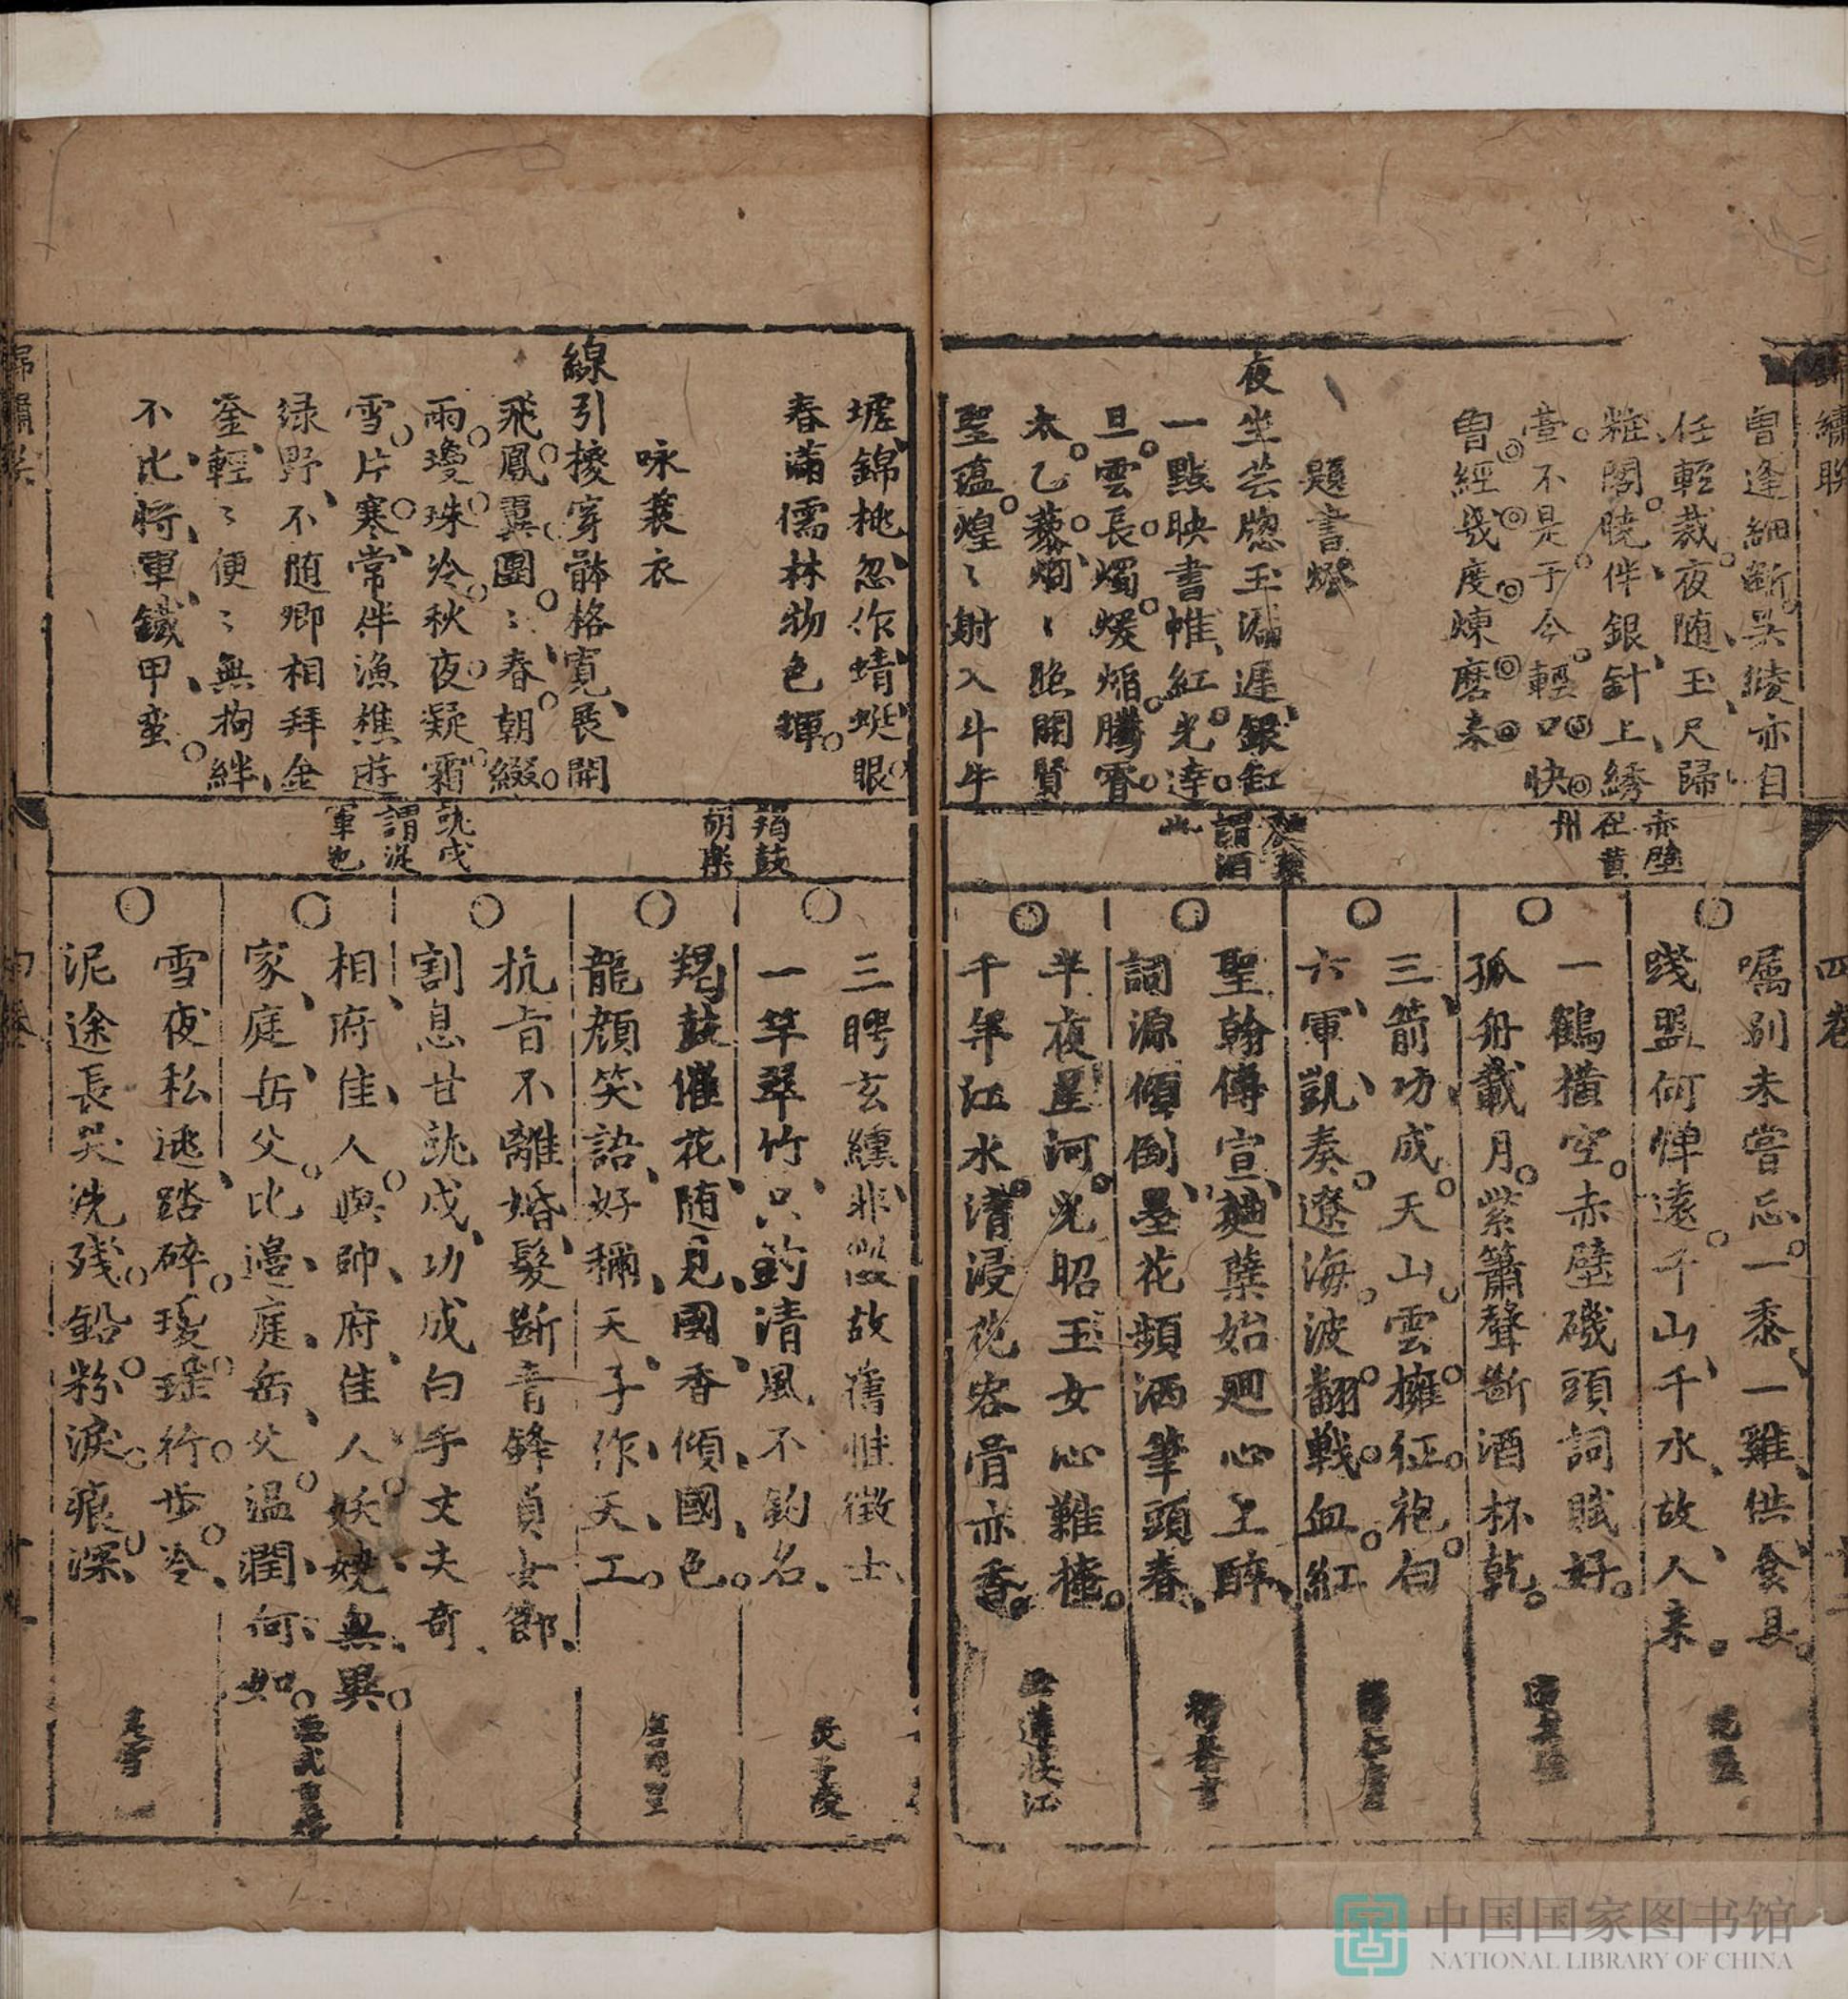 四卷
曽逢細斷吴綾亦自
任輕裁夜随玉尺歸
粧閣曉伴銀針上綉
臺不是于今輕口快
曽經幾度煉磨来
題書燈
夜坐芸牕玉漏遲銀缸
一點映書帷紅光達
旦雲長燭煖焰騰霄
太乙藜烱〻照開賢
聖蕴煌〻射入斗牛
赤壁
在黄
州
嘱别未嘗忘一黍一雞供食具
踐盟何憚遠千山千水故人来
一鶴横空赤壁磯頭詞賦好
孤舟載月紫簫聲斷酒杯乾
三箭功成天山雲擁征袍白
六軍凱奏遼海波翻戰血紅
聖翰傳宣麯蘖始廻心上醉
詞源傾倒墨花頻洒筆頭春
半夜星河光昭玉女心難掩
千年江水清浸花容骨亦香
墟錦桃忽作蜻蜓眼
春滿儒林物色揮
咏蓑衣
線引撥穿骵格寬展開
飛鳳翼團〻春朝綴
雨瓊珠冷秋夜凝霜
雪片寒常伴漁樵遊
绿野不随卿相拜金
銮輕〻便〻無拘絆
不比將軍鐵甲蛮
羯鼓
胡樂
就戍
謂從
軍也
三聘玄纁非假故舊惟徵士
一竿翠竹只釣清風不釣名
羯鼓催花随見國香傾國色
龍顔笑語好稱天子作天工
抗旨不離婚髮斷青鋒貞女節
割恩甘就戍功成白手丈夫奇
相府佳人與帥府佳人妖嬈無異
家庭岳父比邉庭岳父温潤何如
雪夜私逃踏碎瓊瑶行步冷
泥途長哭洗残鉛粉淚痕深
中国国家图书馆
NATIONAL LIBRARY OF CHINA